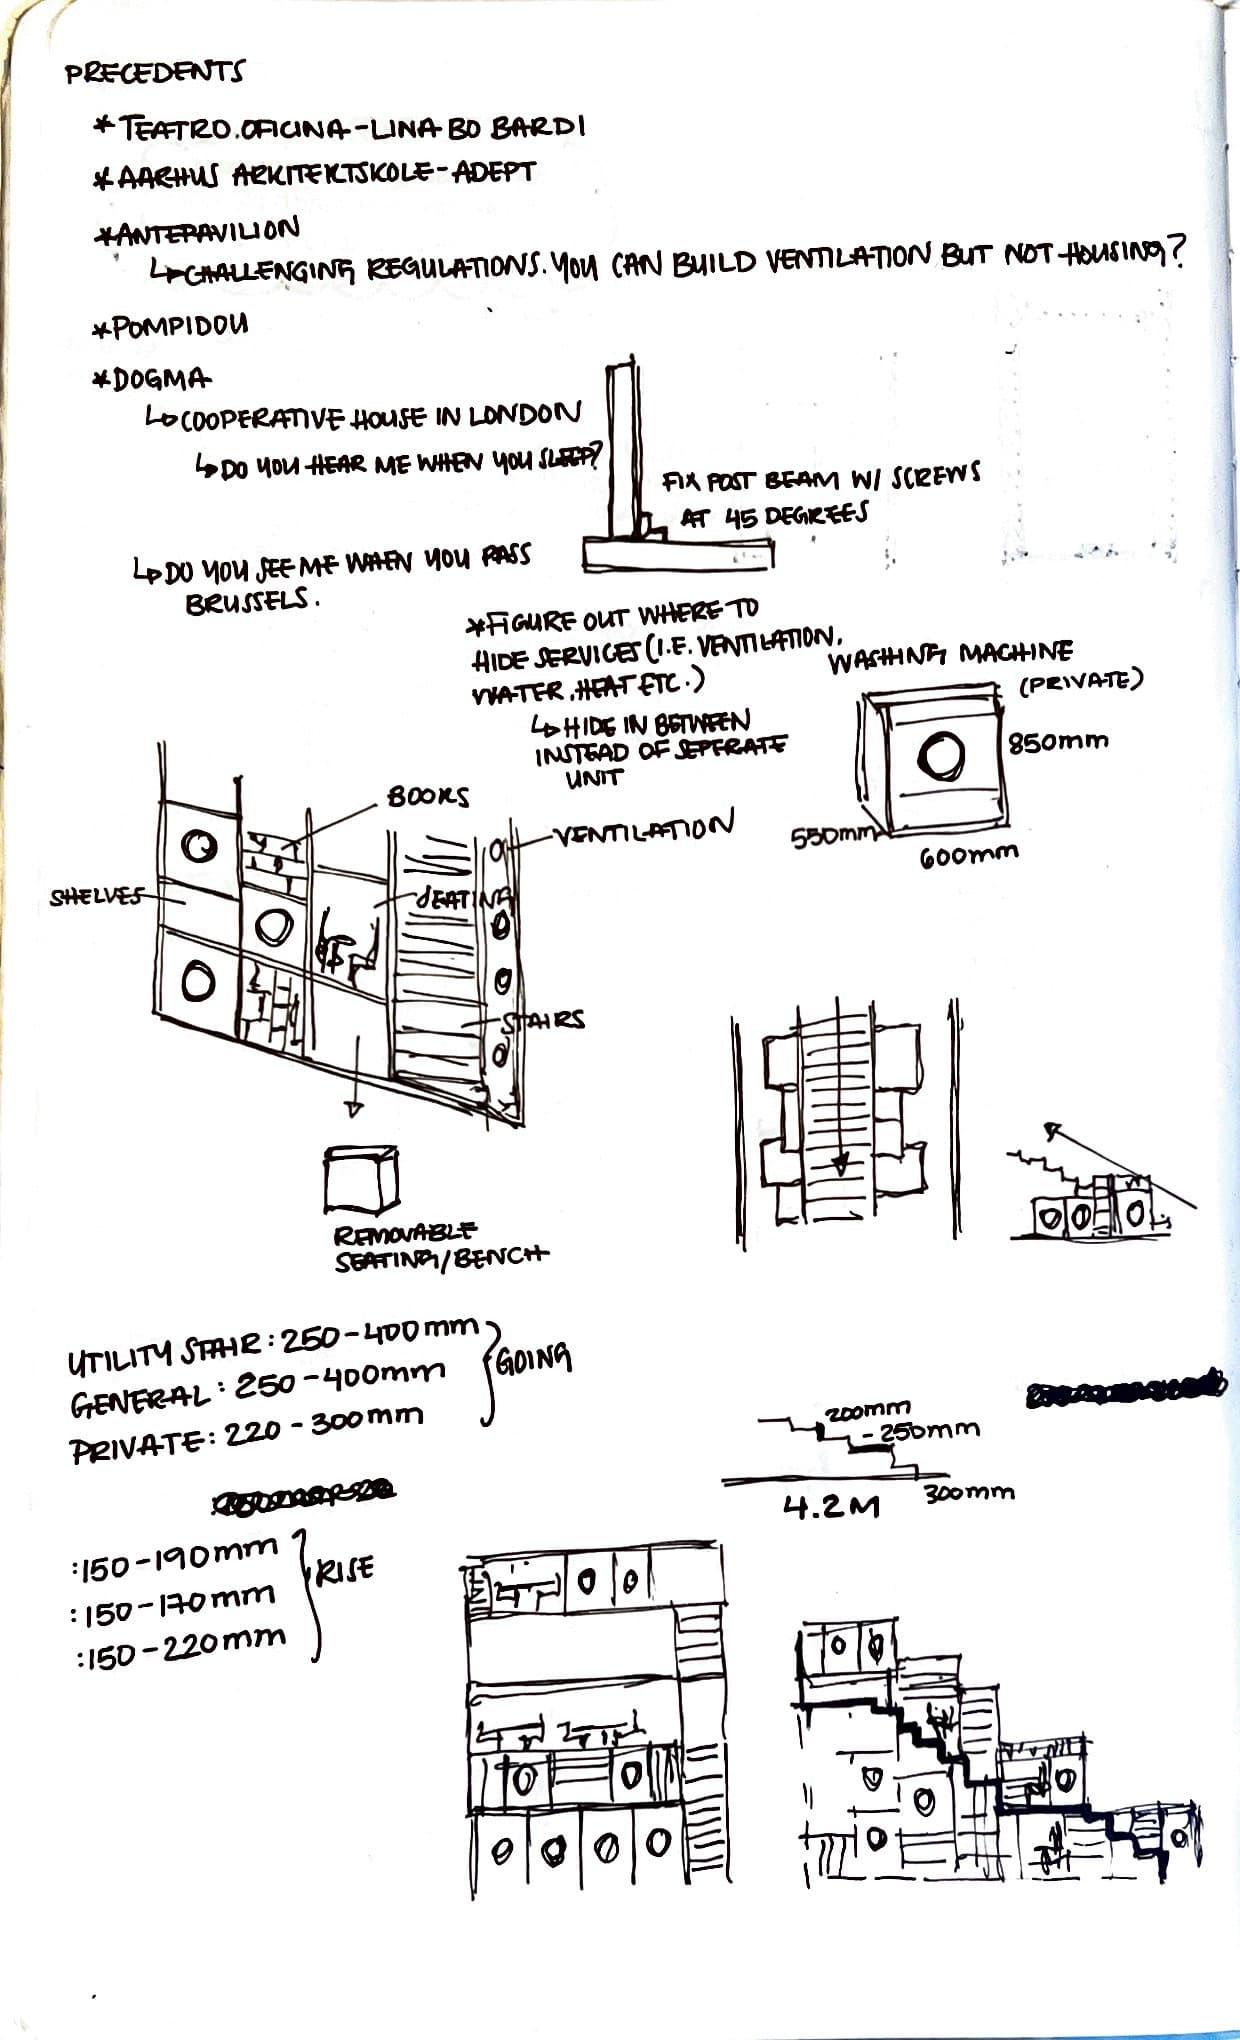 PRECEDENTS
*TEATRO.OFICINA-LINA BO BARDI
*AARHUS ARKITEKTSKOLE-ADEPT
*ANTEPAVILION
↳CHALLENGING REGULATIONS. YOU CAN BUILD VENTILATION BUT NOT HOUSING?
*POMPIDOU
*DOGMA
↳COOPERATIVE HOUSE IN LONDON
↳DO YOU HEAR ME WHEN YOU SLEEP?
FIX POST BEAM W/ SCREWS
AT 45 DEGREES
↳DO YOU SEE ME WHEN YOU PASS
BRUSSELS.
*FIGURE OUT WHERE TO
HIDE SERVICES (I.E. VENTILATION,
WATER, HEAT ETC.)
↳HIDE IN BETWEEN
INSTEAD OF SEPERATE
UNIT
WASHING MACHINE
(PRIVATE)
850mm
550mm
600mm
BOOKS
VENTILATION
SHELVES
SEATING
STAIRS
REMOVABLE
SEATING/BENCH
UTILITY STAIR: 250-400mm
GENERAL: 250-400mm
PRIVATE: 220-300mm
GOING
:150-190mm
:150-170mm
:150-220mm
RISE
200mm
-250mm
300mm
4.2M